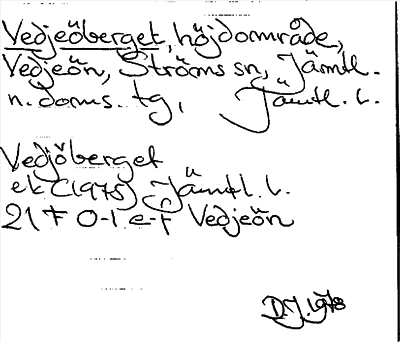 Vedjeöberget, höjdområde,
Vedjeön, Ströms sn, Jämtl.
n. doms. tg, Jämtl. l.
Vedjöberget
ek (1975) Jämtl. l.
21 F 0-1 e-f Vedjeön
D.J. 1978